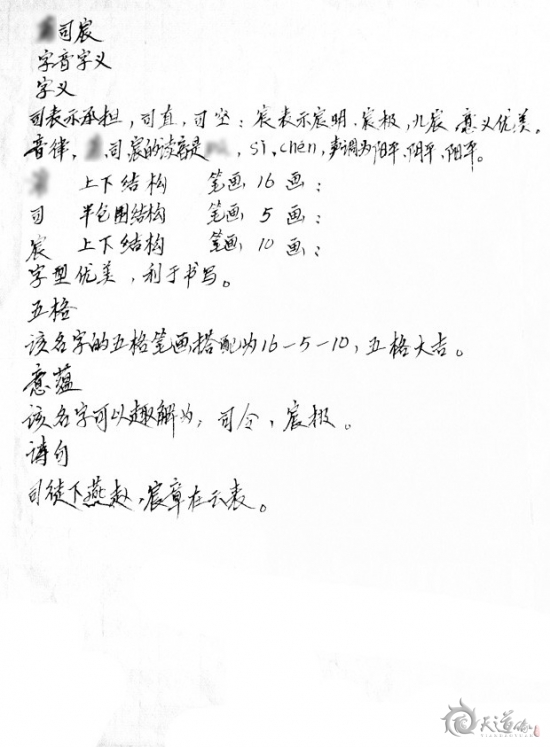 司宸
字音字义
字义
司表示承担，司直，司空；宸表示宸明、宸极，九宸，意义优美。
音律，司宸的读音是，sī，chén，声调为阳平、阴平、阳平。
上下结构 笔画 16 画；
司 半包围结构 笔画 5 画；
宸 上下结构 笔画 10 画；
字型优美，利于书写。
五格
该名字的五格笔画搭配为16-5-10，五格大吉。
意蕴
该名字可以趣解为，司令，宸极。
诗句
司徒下燕赵，宸章在云表。
天道